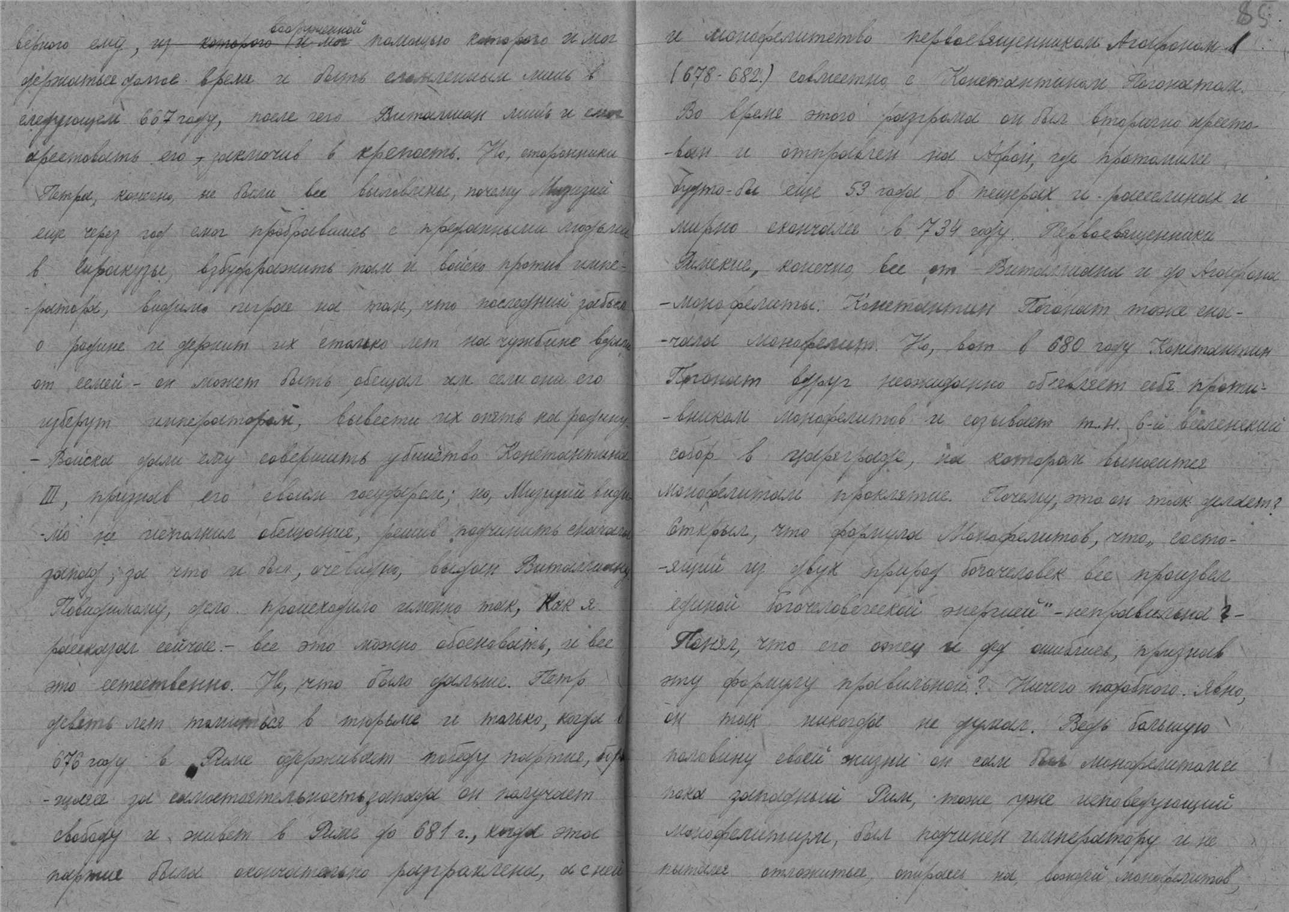 верного ему, из которого и мог вооруженной помощью которого и мог
держаться долгое время и быть сломленным лишь в
следующем 667 году, после чего Виталиан лишь и смог
арестовать его, заключив в крепость. Но, сторонники
Петра, конечно, не были все выловлены, почему Мизизий
еще через год смог пробравшись с преданными людьми
в Сиракузы, взбудоражить там и войско против импе-
-ратора, видимо играя на том, что последний забыл
о родине и держит их столько лет на чужбине вдали
от семей - он может быть обещал им если они его
изберут императором, вывести их опять на родину
- Войска дали ему совершить убийство Константина
III, признав его своим государем; но, Мизизий види-
-мо не исполнил обещание, решив подчинить сначала
запад; за что и был, очевидно, выдан Виталиану
Повидимому, дело происходило именно так, как я
рассказал сейчас - все это можно обосновать, и все
это естественно. Но, что было дальше. Петр
девять лет томиться в тюрьме и только, когда в
676 году в Риме одерживает победу партия, боро-
-щаяся за самостоятельность запада он получает
свободу и живет в Риме до 681 г., когда эта
партия была окончательно разгромлена, а с ней
85.
и монофелитство первосвященником Агафоном 1
(678-682.) совместно с Константином Погонатом.
Во время этого разгрома он был вторично аресто-
-ван и отправлен на Афон, где протомился,
будто-бы еще 53 года в пещерах и расселинах и
мирно скончался в 734 году. Первосвященники
Римские, конечно, все от Виталиана и до Агафона
-монофелиты. Константин Погонат тоже сна-
-чала монофелит. Но, вот в 680 году Константин
Погонат вдруг неожиданно объявляет себя проти-
-вником монофелитов и созывает т.н. 6-й вселенский
собор в Цареграде, на котором выносится
монофелитам проклятие. Почему, это он так делает?
Открыл, что формула Монофелитов, что "состо-
-ящий из двух природ богочеловек все произвел
единой богочеловеческой энергией" - неправильна? -
Понял, что его отец и дед ошибались, признав
эту формулу правильной? Ничего подобного. Явно,
он так никогда не думал. Ведь большую
половину своей жизни он сам был монофелитом и
пока западный Рим, тоже уже исповедующий
монофелитизм, был подчинен императору и не
пытался отложиться, опираясь на вождей монофелитов,